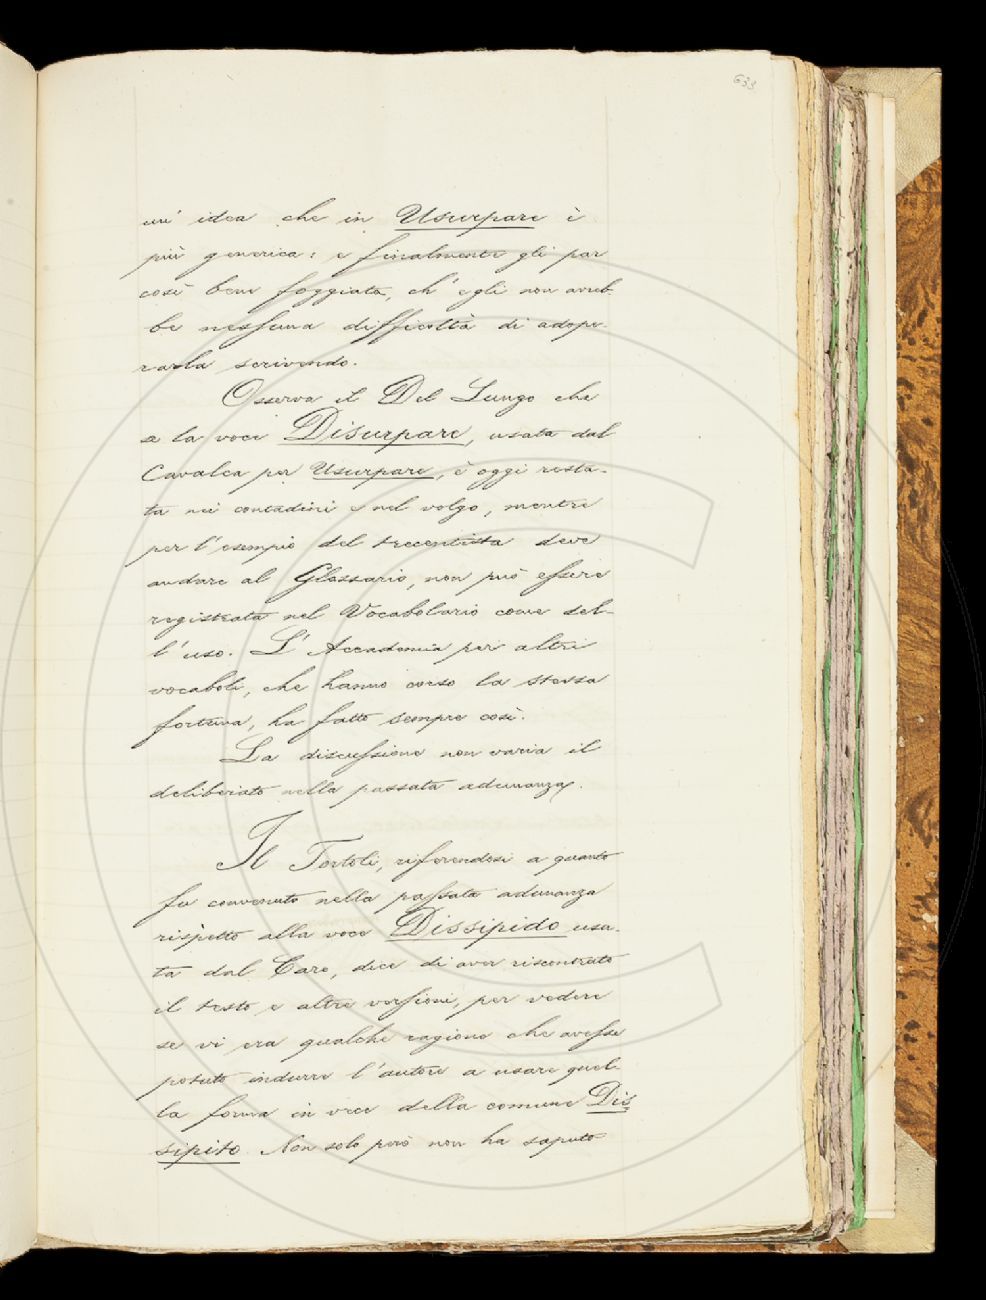 633
un' idea che in Usurpare è
più generica: e finalmente gli par
così bene foggiata, ch' egli non avreb-
be nessuna difficoltà di adope-
rarla scrivendo.
Osserva il Del Lungo che
se la voce Disurpare, usata dal
Cavalca per Usurpare, è oggi resta-
ta nei contadini e nel volgo, mentre
per l' esempio del trecentista deve
andare al Glossario, non può essere
registrata nel Vocabolario come del-
l' uso. L' Accademia per altri
vocaboli, che hanno corso la stessa
fortuna, ha fatto sempre così.
La discussione non varia il
deliberato nella passata adunanza.
Il Tortoli, riferendosi a quanto
fu convenuto nella passata adunanza
rispetto alla voce Dissipido usa-
ta dal Caro, dice di aver riscontrato
il testo e altre versioni, per vedere
se vi era qualche ragione che avesse
potuto indurre l' autore a usare quel-
la forma in vece della comune Dis-
sipito. Non solo però non ha saputo